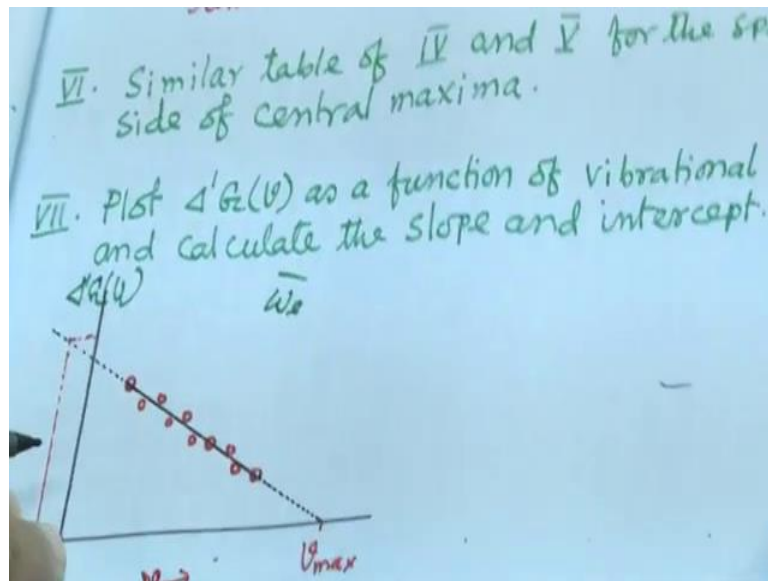 VI. Similar table of IV and V for the
side of central maxima.
VII. Plot Δ'G(υ) as a function of vibrational
and calculate the slope and intercept.
ωe
υmax